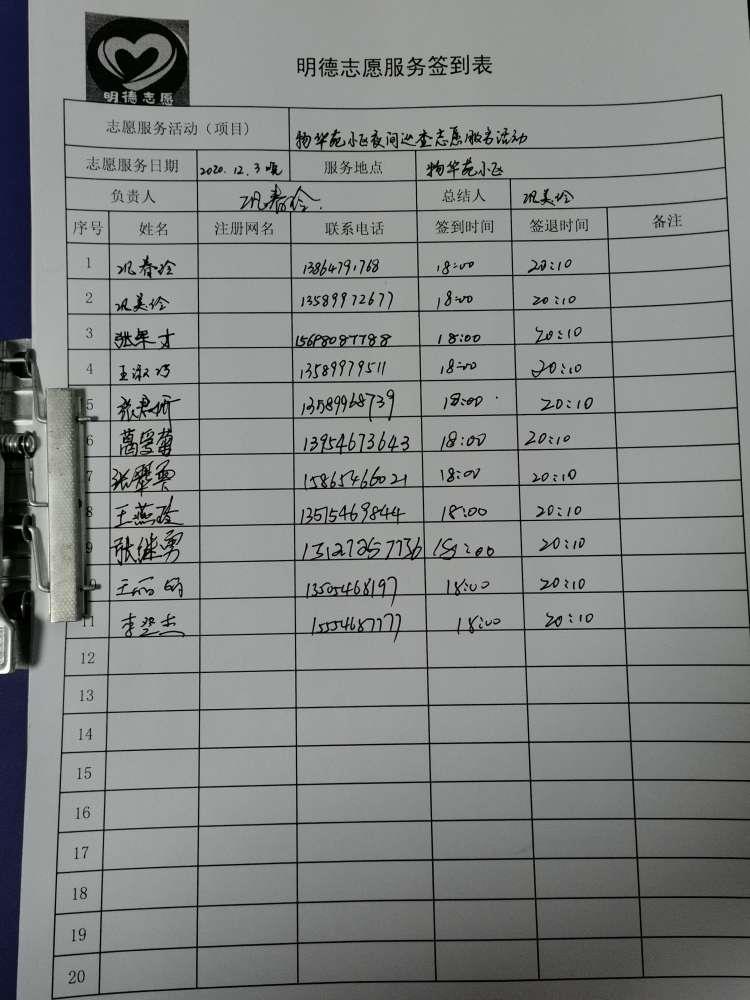 明德志愿
明德志愿服务签到表
志愿服务活动（项目） 物华苑小区夜间巡查志愿服务活动
志愿服务日期 2020.12.3晚 服务地点 物华苑小区
负责人 巩春玲 总结人 巩美玲
序号 姓名 注册网名 联系电话 签到时间 签退时间 备注
1 巩春玲 13864791768 18:00 20:10
2 巩美玲 13589972677 18:00 20:10
3 15698087788 18:00 20:10
4 王淑巧 13589979511 18:00 20:10
5 13589968739 18:00 20:10
6 13954673643 18:00 20:10
7 15865466021 18:00 20:10
8 王燕玲 13515469844 18:00 20:10
9 张继勇 15127257736 18:00 20:10
王丽明 13505468197 18:00 20:10
11 李翠杰 15554687777 18:00 20:10
12
13
14
15
16
17
18
19
20